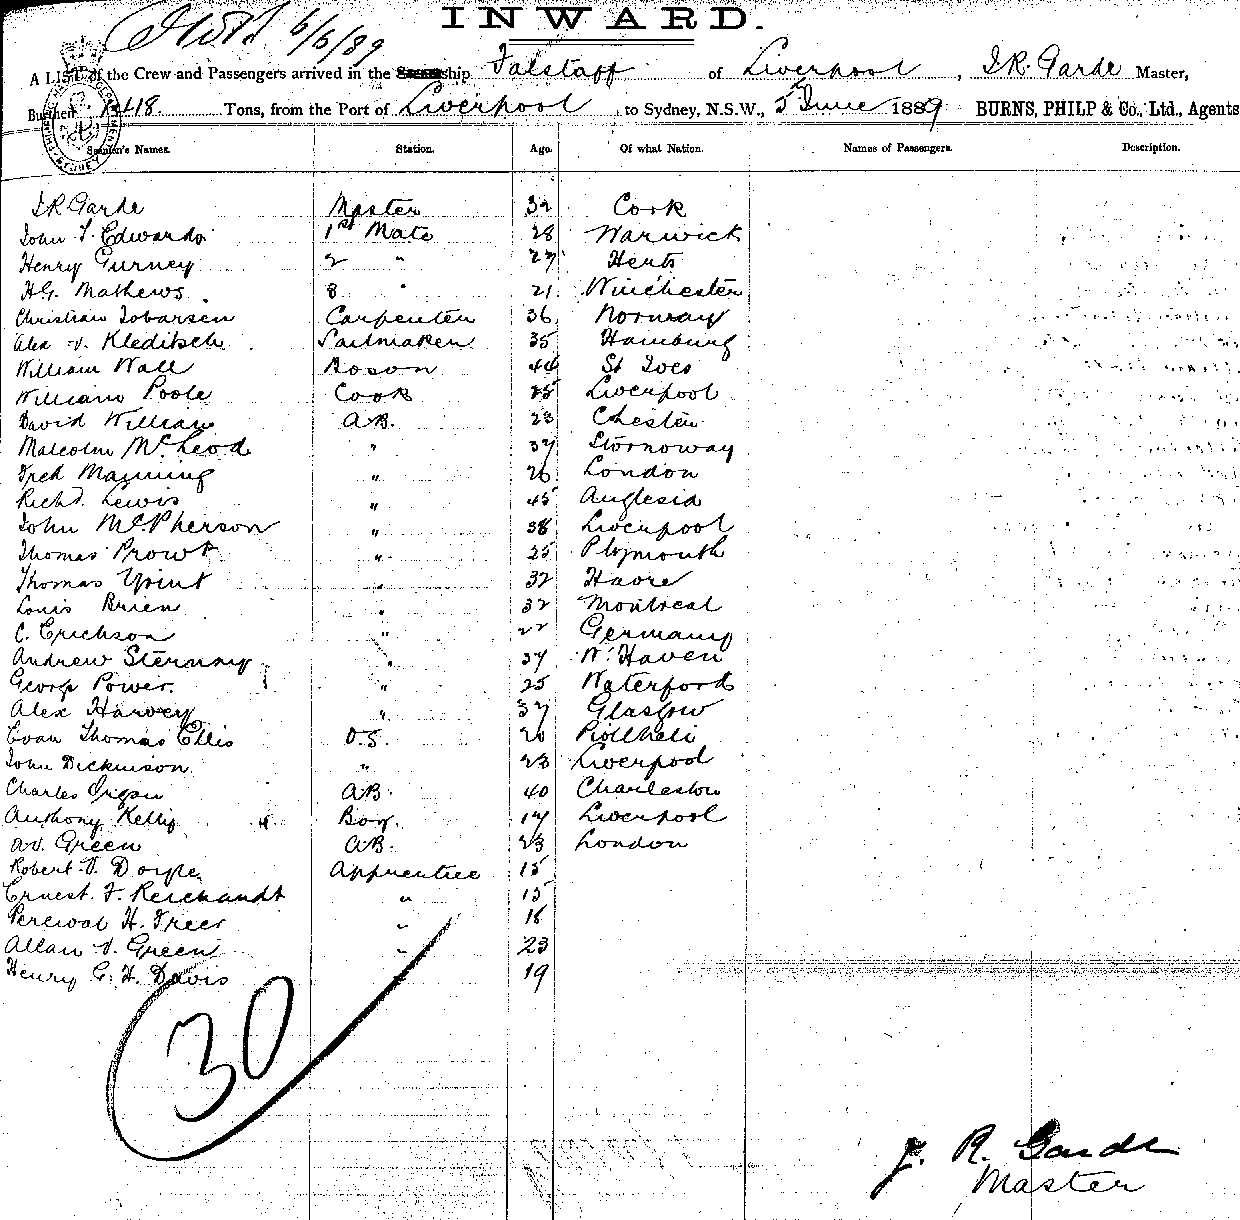 6/6/89
INWARD.
A LIST of the Crew and Passengers arrived in the ship Falstaff of Liverpool, J.R. Garde Master,
Burthen 1418 Tons, from the Port of Liverpool, to Sydney, N.S.W., 5 June 1889 BURNS, PHILP & Co., Ltd., Agents
Seamen's Names. Station. Age. Of what Nation. Names of Passengers. Description.
J R Garde Master 32 Cork
John T. Edwards 1st Mate 28 Warwick
Henry Gurney 2 " 27 Herts
H.G. Mathews 3 " 21 Winchester
Christian Carpenter 36 Norway
Alex v. Kleditsch Sailmaker 35 Hamburg
William Wall Boson 44 St Ives
William Poole Cook 25 Liverpool
David William A.B. 23 Chester
Malcolm McLeod " 37 Stornoway
Fred Manning " 26 London
Richd. Lewis " 45 Anglesia
John McPherson " 38 Liverpool
Thomas Prowt " 25 Plymouth
Thomas " 32 Havre
Louis Brien " 32 Montreal
C. Erickson " 22 Germany
Andrew " 37 W. Haven
George Power. " 25 Waterford
Alex Harvey " 37 Glasgow
Evan Thomas Ellis O.S. 20 Pwllheli
John Dickinson " 23 Liverpool
Charles A.B. 40 Charleston
Anthony Kelly Boy. 17 Liverpool
A.V. Green A.B. 23 London
Robert V. Apprentice 15
Ernest F. Reichardt " 15
Percival H. Freer " 18
Allan V. Green " 23
Henry G. H. Davis 19
30
J. R. Garde
Master